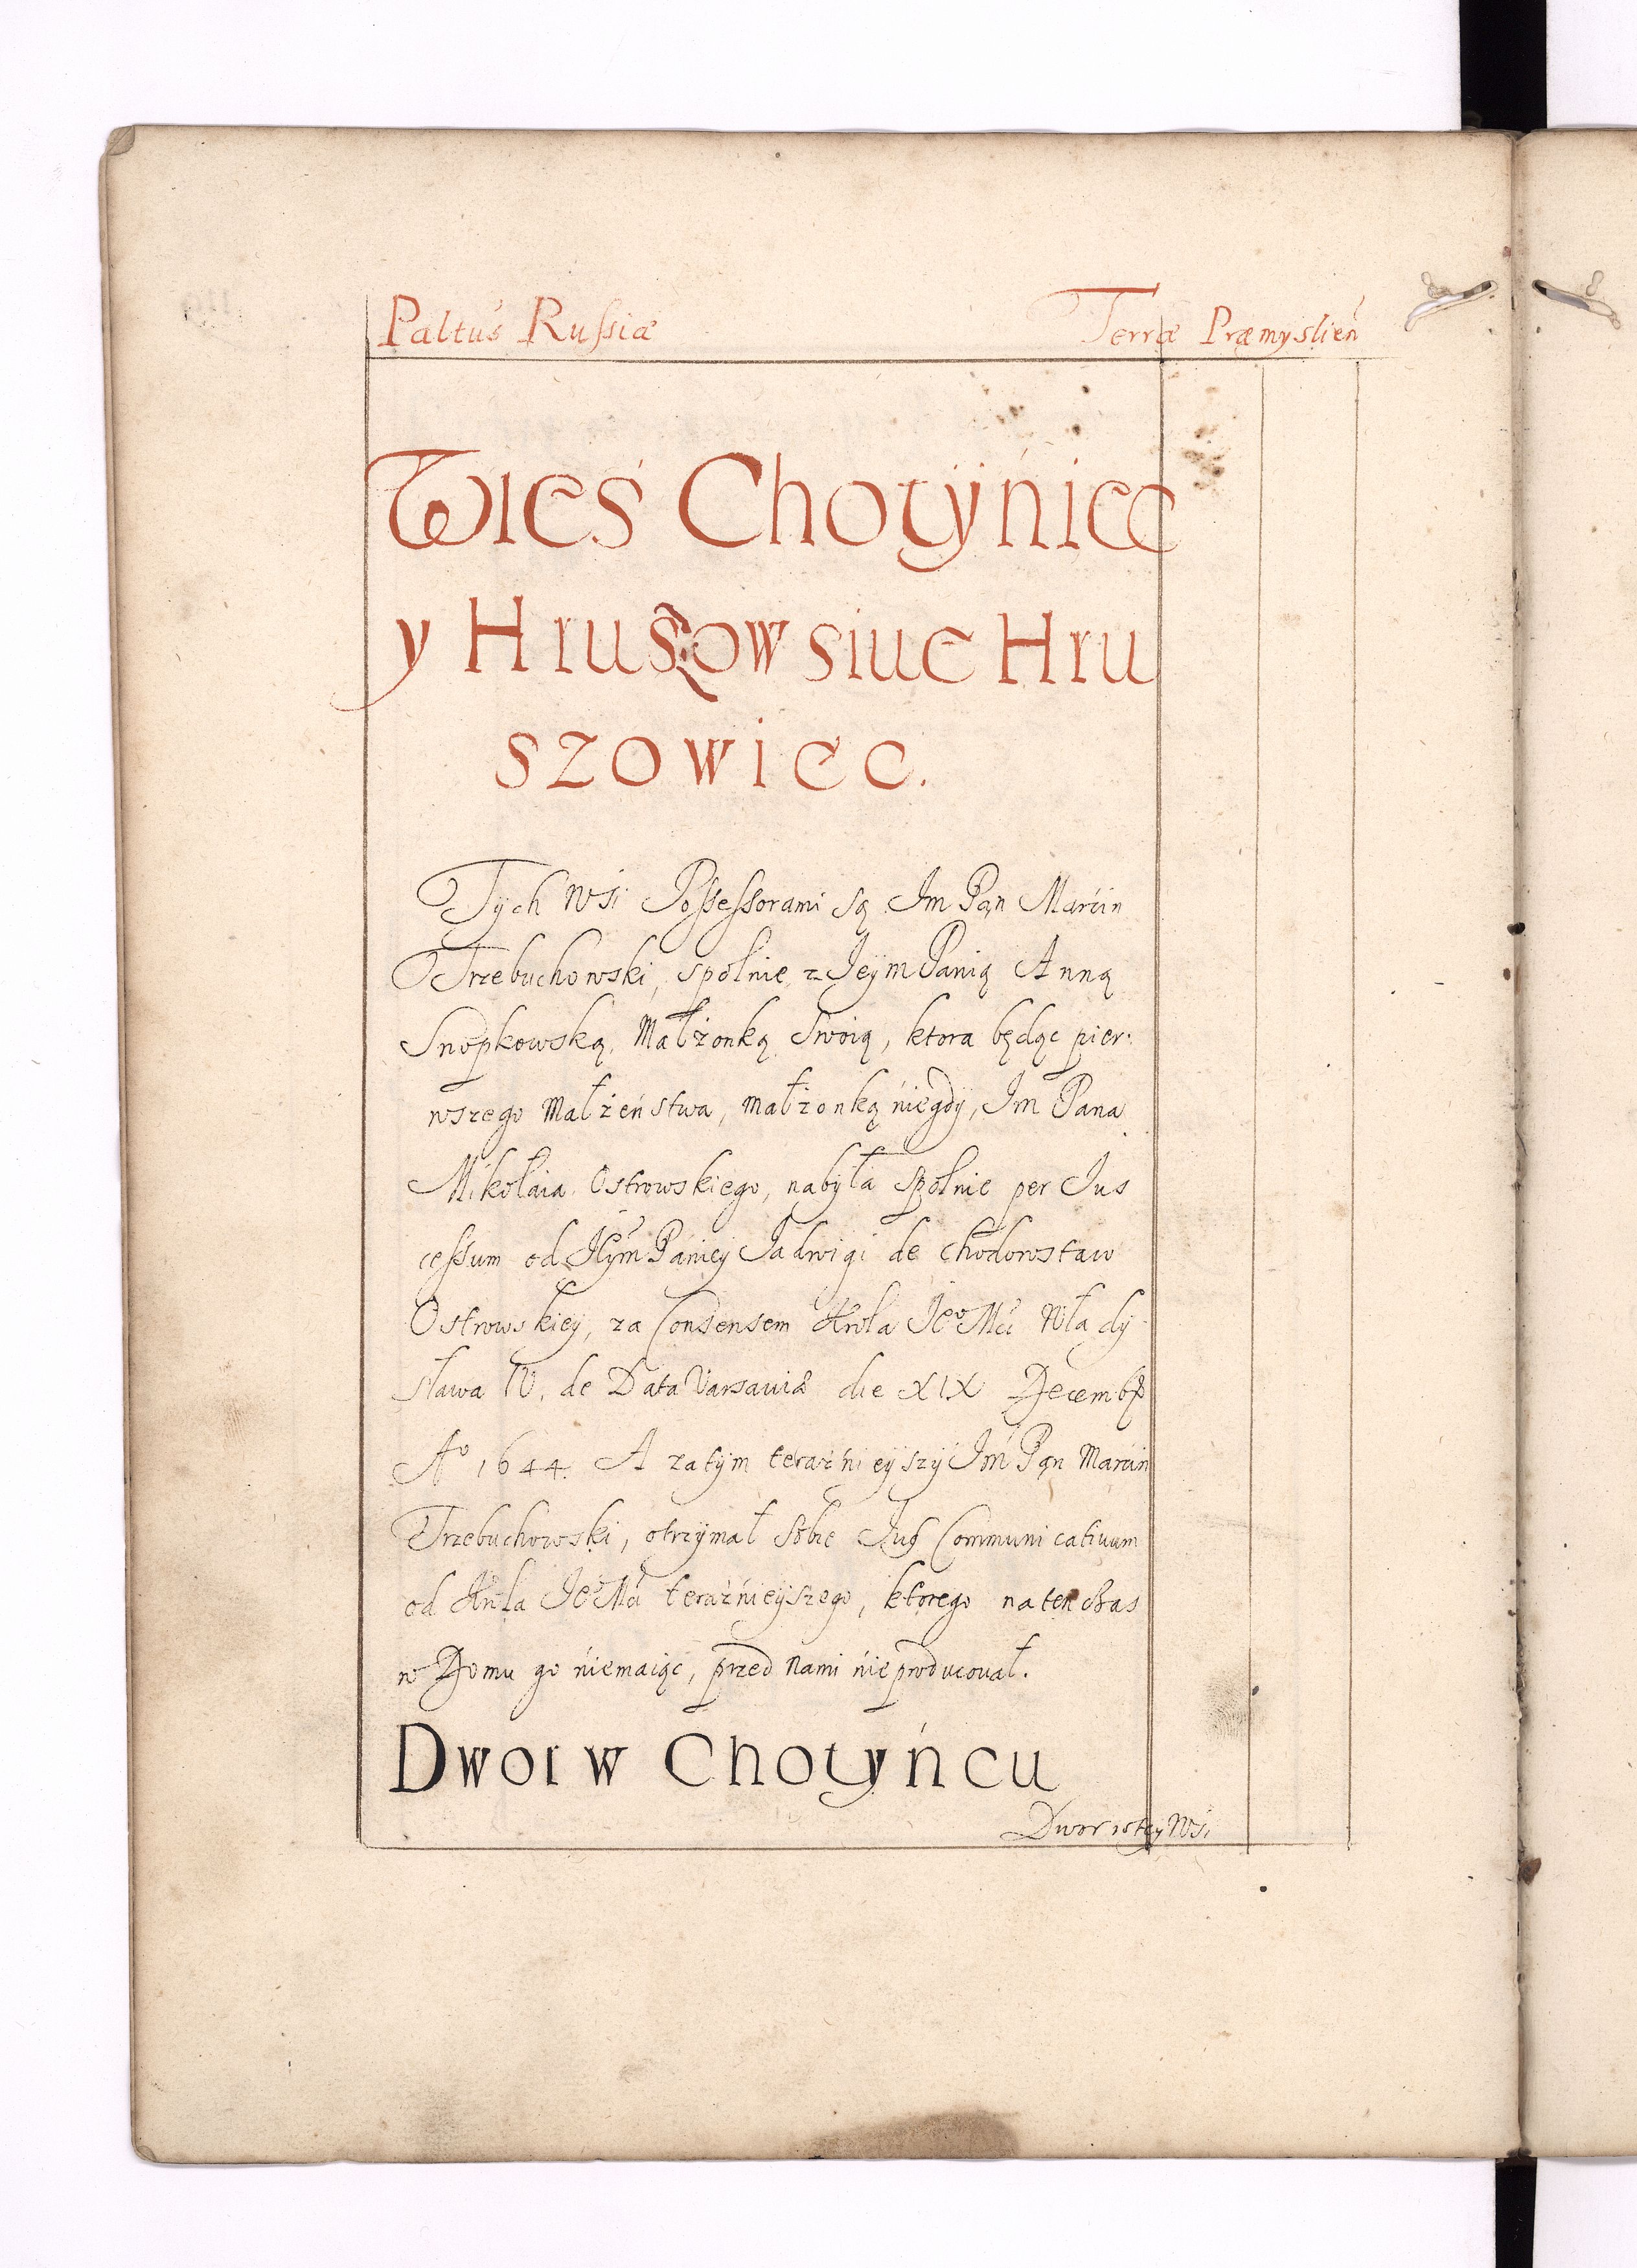 Paltus Russiæ Terræ Præmyslień
Wieś Chotÿniec
y Hruszow siue Hru
szowiec.
Tych Wsi Possessorami są Im Pąn Marcin
Trzebuchowski, spolnie z Jeÿm Panią Anną
Snopkowską, Małżonką Swoią, ktora będąc pier:
wszego Małżeństwa, małżonką niegdÿ, Im Pana
Mikołaia Ostrowskiego, nabyła spolnie per Jus
cessum od Jeÿm Paniey Jadwigi de Chodorostaw
Ostrowskiey, za Consensem Krola Jeº Mći Wła dÿ
sława IV. de Data Varsauiæ die XIX Decembr
Aº 1644. A zatÿm teraźnieÿszÿ Im Pąn Marcin
Trzebuchowski, otrzÿmał sobie Jus Communicatiuum
od Krola Jeº Mći teraźnieyszego, ktorego na ten czas
w Domu go niemaiąc, przed nami nieproducował.
Dwor w Chotyńcu
Dwor w tey Wsi